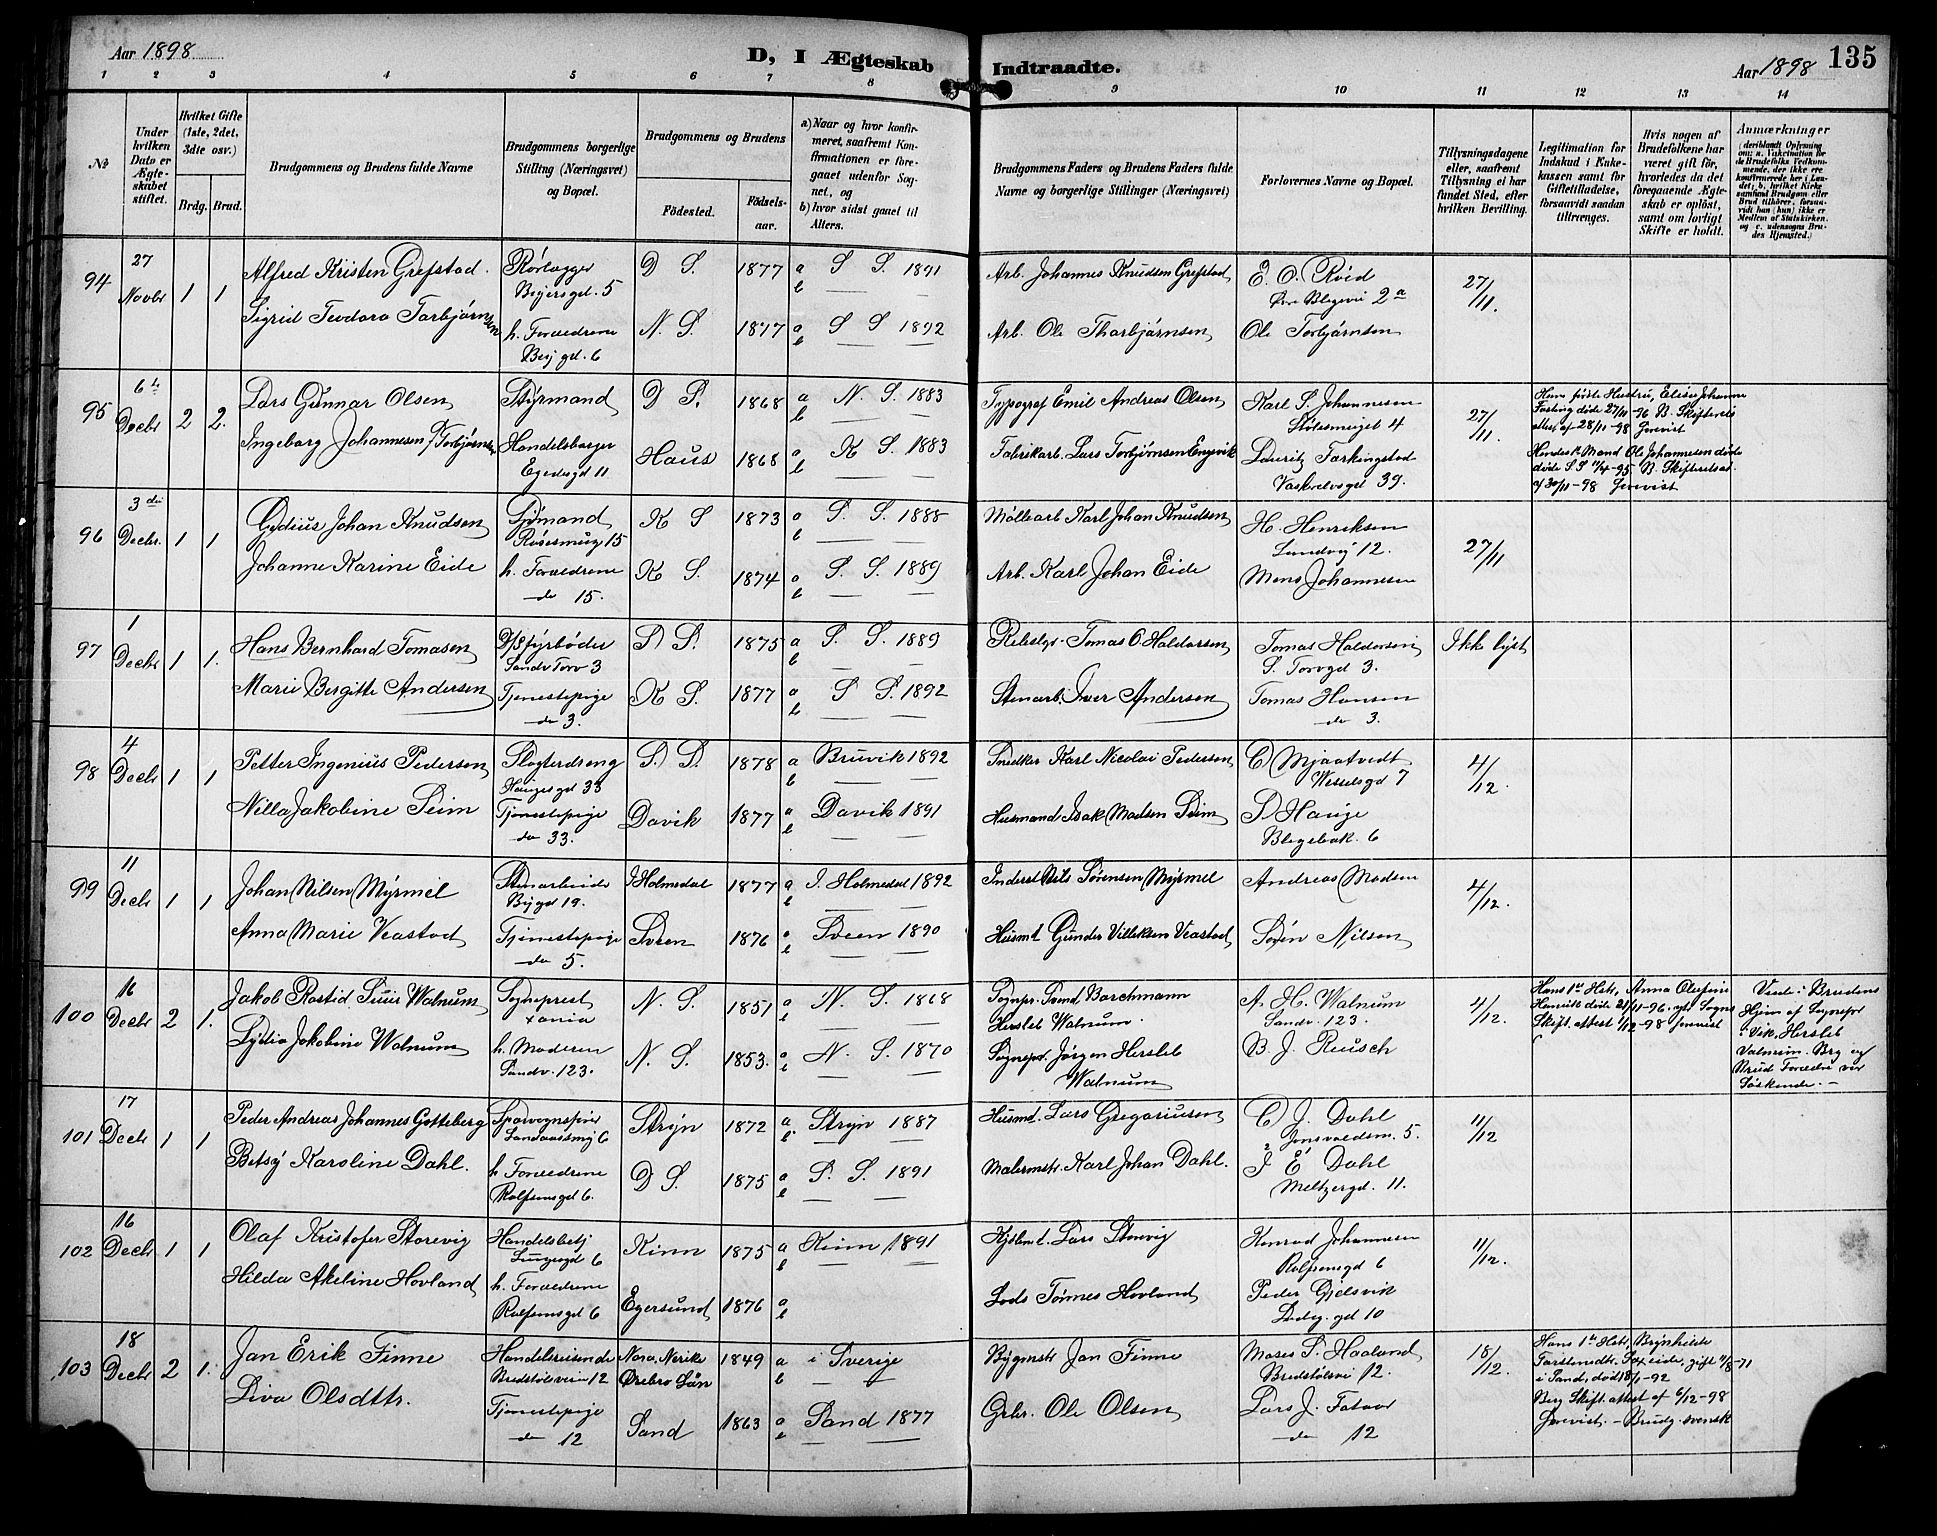 Aar 1898
D, I Ægteskab Indtraadte.
Aar 1898
135
1 2 3 4 5 6 7 8 9 10 11 12 13 14
No
Under hvilken Dato er Ægteskabet stiftet.
Hvilket Gifte (1ste, 2det, 3die osv.)
Brdg. Brud.
Brudgommens og Brudens fulde Navne
Brudgommens borgerlige Stilling (Næringsvei) og Bopæl.
Brudgommens og Brudens
Fødested.
Fødselsaar.
a) Naar og hvor konfirmeret, saafremt Konfirmationen er foregaaet udenfor Sognet, og
b) hvor sidst gaaet til Alters.
Brudgommens Faders og Brudens Faders fulde Navne og borgerlige Stillinger (Næringsvei)
Forlovernes Navne og Bopæl.
Tillysningsdagene eller, saafremt Tillysning ei har fundet Sted, efter hvilken Bevilling.
Legitimation for Indskud i Enkekassen samt for Giftetilladelse, forsaavidt saadan tiltrænges.
Hvis nogen af Brudefolkene har været gift før, hvorledes da det foregaaende Ægteskab er opløst, samt om lovligt Skifte er holdt.
Anmærkninger
94 27 Novbr 1 1
Alfred Kristen Grefstad. Rørlægger Beyersgd. 5 D S. 1877 a S S. 1891 b
Arb. Johannes Knudsen Grefstad E. O. Røid Øvre Blegevei 2a 27/11.
Sigrid Teodora Torbjørnsen h. Forældrene 6 N. S. 1877 a S S 1892 b
Arb. Ole Thorbjørnsen Ole Torbjørnsen
95 6te Decbr 2 2.
Lars Gunnar Olsen Styrmand D S. 1868 a N. S. 1883 b
Typograf Emil Andreas Olsen Karl S. Johannesen 4 27/11.
Ingeborg Johannesen f. Torbjørnsen Egedesgd 11 Haus 1868 a K S. 1883 b
Fabrikarb. Lars Torbjørnsen Engevik Lauritz Farkingstad Vaskerelvsgd 39.
Hans første Hustru, Elise Johanne Fasting døde 27/11-96 B. Skifterets attest af 28/11-98 forevist
Hendes 1e Mand Ole Johannesen døde S S -95 B. Skifteretsat. af 30/11-98 forevist
96 3die Decbr. 1 1
Lydius Johan Knudsen Sømand Rosesmug 15 K S 1873 a S. S. 1888 b
Møllearb Karl Johan Knudsen H. Henriksen Sandvg 12. 27/11
Johanne Karine Eide h. Forældrene do 15. K S. 1874 a S. S. 1889 b
Arb. Karl Johan Eide Mons Johannesen
97 1 Decbr 1 1.
Hans Bernhard Tomasen D/S fyrbøder Sandv Torv 3 S. S. 1875 a S. S. 1889 b
Tomas O Haldorsen Tomas Haldorsen S. Torvgd 3. Ikke lyst
Marie Bergitte Andersen Tjenestepige do 3. K S. 1877 a S S. 1892 b
Stenarb. Iver Andersen Tomas Hansen do 3.
98 4 Decbr 1 1
Petter Ingenius Pedersen Slagterdreng Haugesgd 33 S. S. 1878 a Bruvik 1892 b
Snedker Karl Nicolai Pedersen C Mjaatvedt Wesselsgd 7 4/12.
Nilla Jakobine Seim Tjenestepige do 33. Davik 1877 a Davik 1891 b
Husmand Isak Madsen Seim S Hauge Blegebak. 6
99 11 Decbr 1 1
Johan Nilsen Myrmel Stenarbeider 19. I Holmedal 1877 a I. Holmedal 1892 b
Inderst Nils Sørensen Myrmel Andreas Madsen 4/12.
Anna Marie Veastad Tjenestepige do 5. Sveen 1876 a Sveen 1890 b
Husmd. Gunder Villiksen Veastad Søren Nilsen
100 16 Decbr 2 1.
Jakob Rostid Suur Walnum Sogneprest N. S. 1851 a N. S. 1868 b
Sognpr. Tomd Borchmann Hersleb Walnum. A. H. Walnum Sandv. 123. 4/12.
Lydia Jakobine Walnum h. Moderen Sandv. 123. N. S. 1853. a N. S. 1870 b
Sognepr. Jørgen Hersleb Walnum B. J. Reusch
Hans 1te Hstr, Anna Olufine døde 21/11-96. Skift. attest 1/12-98 forevist
Viede i Brudens Hjem af Sognepr i Vik, Hersleb Valnum. Brg og Bruds Forældre var Søskende. —
101 17 Decbr 1 1
Peder Andreas Johannes Gotteberg 6 Stryn 1872 a Stryn 1887 b
Husmd. Lars Gregoriusen C J. Dahl 5. 11/12
Betsy Karoline Dahl. h. Forældrene Rolfsensgd 6. D S. 1875 a S. S. 1891 b
Malermstr. Karl Johan Dahl. J E Dahl Meltzergd. 11.
102 16 Decbr 1 1
Olaf Kristofer Storevig Handelsbetj 6 Kinn 1875 a Kinn 1891 b
Lars Storevig Konrad Johannesen Rolfsensgd 6 11/12.
Hilda Akeline Hovland h. Forældrene Rolfsensgd 6 Egersund 1876 a b
Lods Tønnes Hovland Peder Gjelsvik gd 10
103 18 Decbr 2 1.
Jan Erik Finne Handelsreisende Bredstølsveien 12 Nora, Nerike Ørebro Län 1849 a i Sverige b
Bygmstr Jan Finne Moses S. Haaland Bredstølsvei 12. 18/12.
Siva Olsdttr. Tjenestepige do 12 Sand 1863 a Sand 1877 b
Grbr. Ole Olsen Lars J. Fataar do 12
Hans 1te Hstr, Brynhilde Tarstensdtr. Saxeide, gift 4/8-71 i Sand, død 18/1-92 Berg Skift. attest af 6/12-98 forevist. — Brudg. svensk